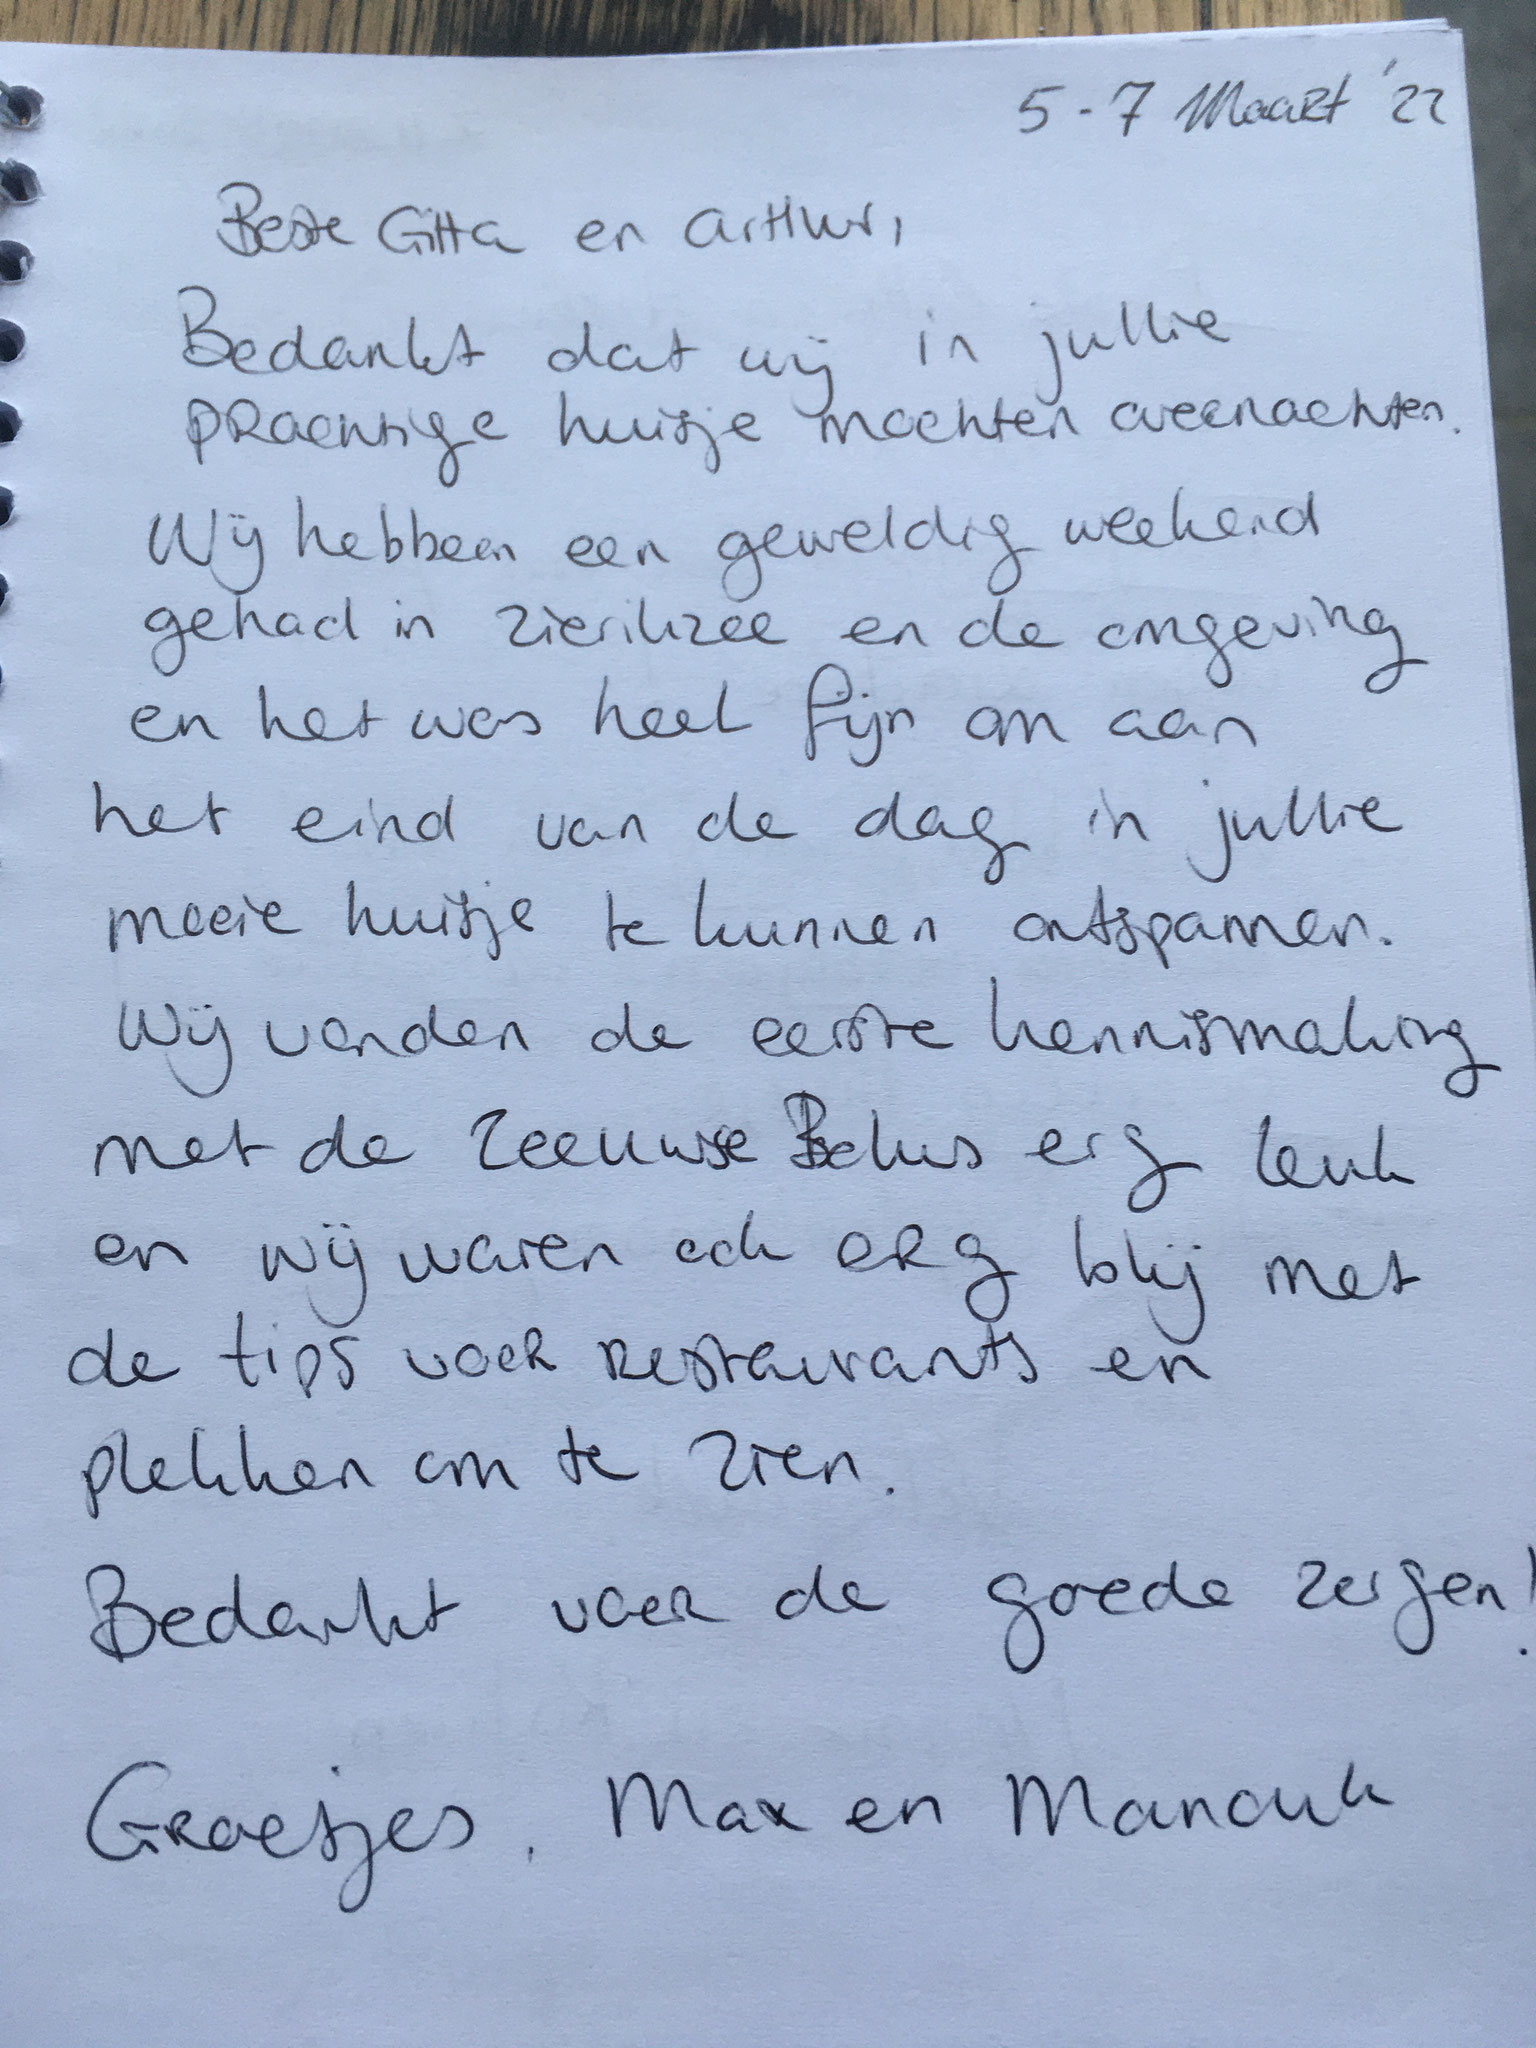 5 - 7 Maart '22
Beste Gitta en Arthur,
Bedankt dat wij in jullie
prachtige huisje mochten overnachten.
Wij hebben een geweldig weekend
gehad in Zierikzee en de omgeving
en het was heel fijn om aan
het eind van de dag in jullie
mooie huisje te kunnen ontspannen.
Wij vonden de eerste kennismaking
met de Zeeuwse Bolus erg leuk
en wij waren ook erg blij met
de tips voor restaurants en
plekken om te zien.
Bedankt voor de goede zorgen!
Groetjes, Max en Manouk